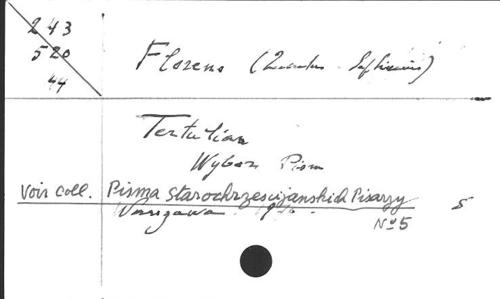 243
520
44
Florens (
Tertulian
Wybór Pism
Voir coll. Pisma starochrzescijanskich Pisarzy
S
Warszawa
Nº 5